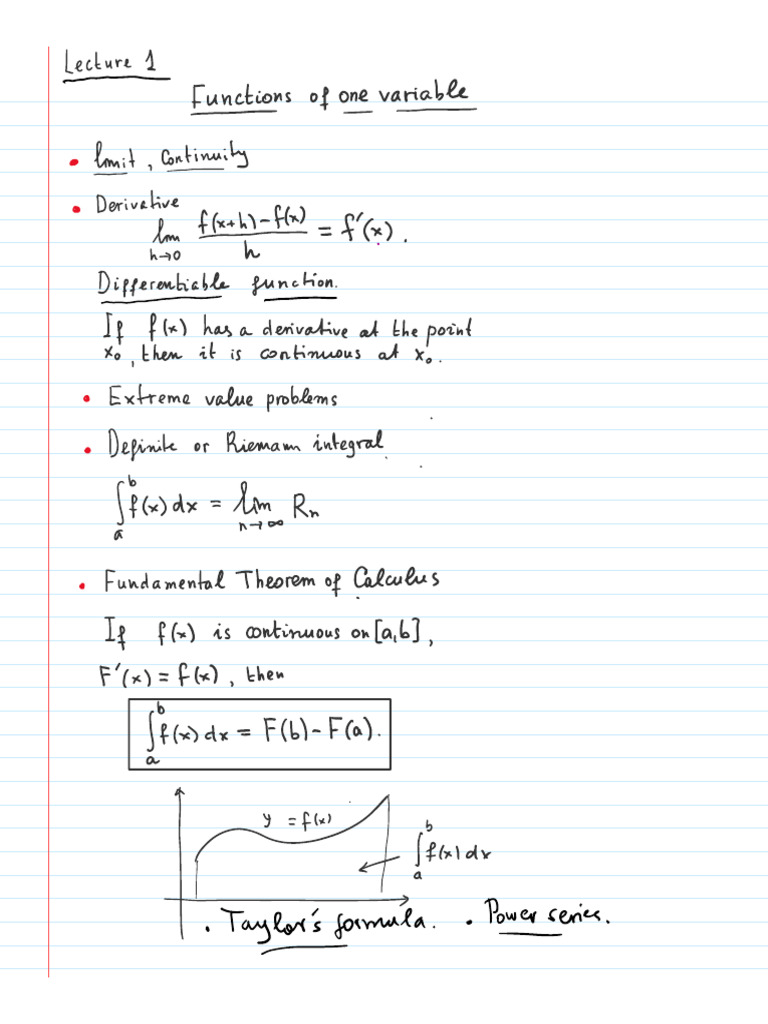 Lecture 1
Functions of one variable
• limit, Continuity
• Derivative
lim h→0 (f(x+h) − f(x))/h = f′(x).
Differentiable function.
If f(x) has a derivative at the point
x₀, then it is continuous at x₀.
• Extreme value problems
• Definite or Riemann integral
∫ₐᵇ f(x) dx = lim n→∞ Rₙ
• Fundamental Theorem of Calculus
If f(x) is continuous on [a,b],
F′(x) = f(x), then
∫ₐᵇ f(x) dx = F(b) − F(a).
y = f(x)
∫ₐᵇ f(x) dx
• Taylor's formula. • Power series.